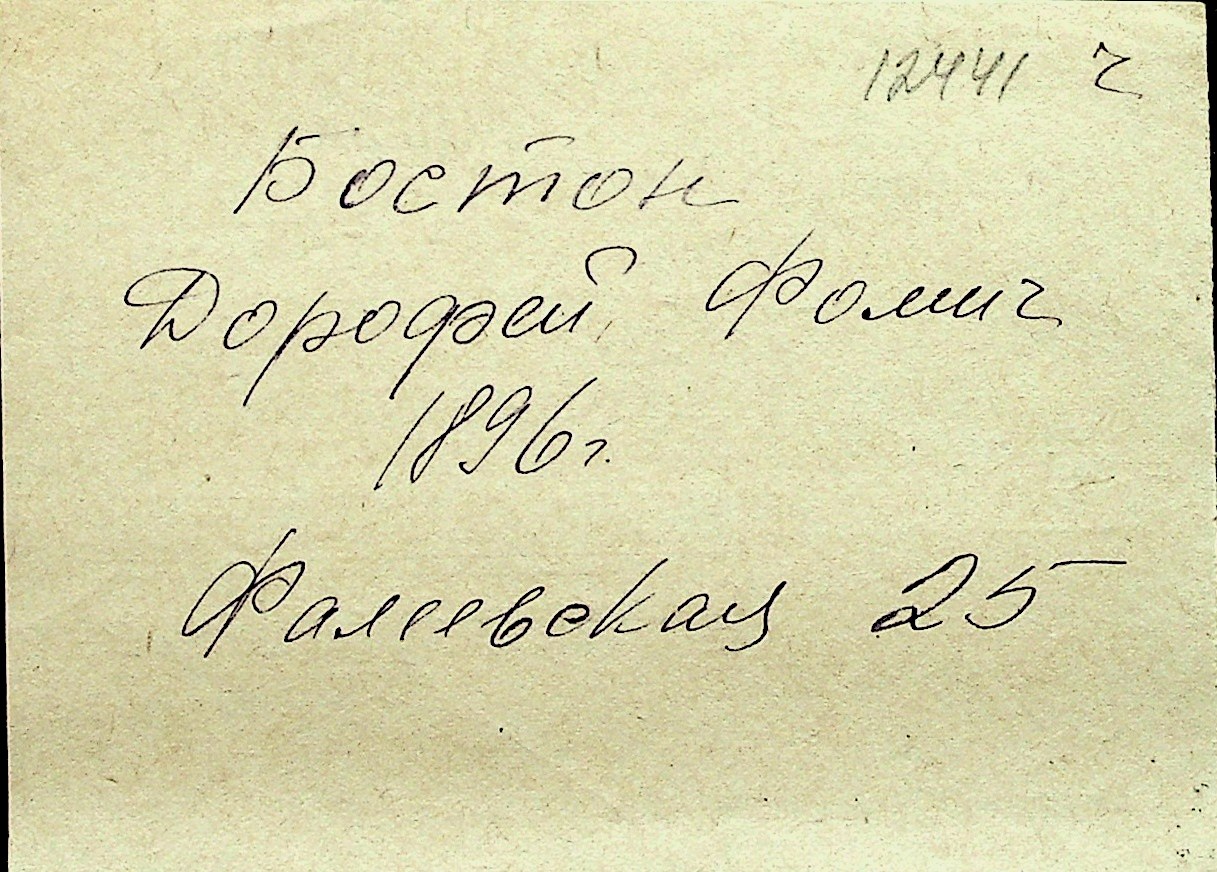 12441 ч
Бостон
Дорофей Фомич
1896г.
Фалеевская 25